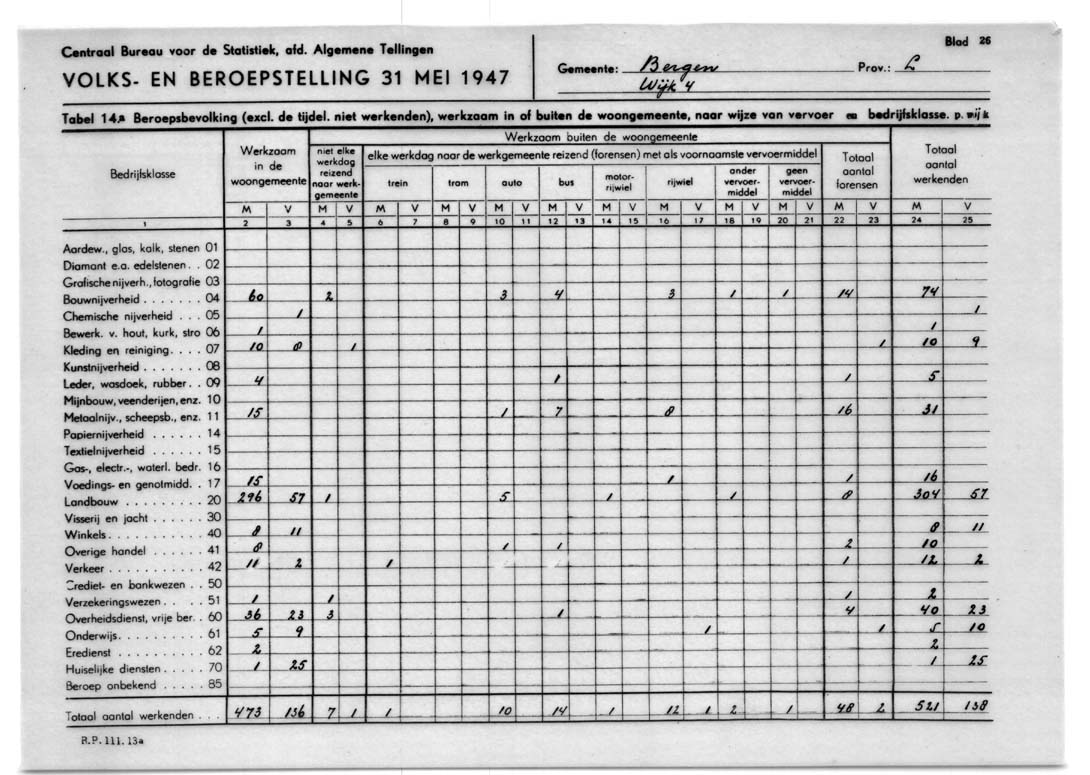 Centraal Bureau voor de Statistiek, afd. Algemene Tellingen
VOLKS- EN BEROEPSTELLING 31 MEI 1947
Gemeente: Bergen
Wijk 4
Prov.: L
Blad 26
Tabel 14.a Beroepsbevolking (excl. de tijdel. niet werkenden), werkzaam in of buiten de woongemeente, naar wijze van vervoer en bedrijfsklasse. p. wijk
Bedrijfsklasse
Werkzaam in de woongemeente
Werkzaam buiten de woongemeente
niet elke werkdag reizend naar werk-gemeente
elke werkdag naar de werkgemeente reizend (forensen) met als voornaamste vervoermiddel
trein tram auto bus motor-rijwiel rijwiel ander vervoer-middel geen vervoer-middel
Totaal aantal forensen
Totaal aantal werkenden
M V M V M V M V M V M V M V M V M V M V M V M V
1 2 3 4 5 6 7 8 9 10 11 12 13 14 15 16 17 18 19 20 21 22 23 24 25
Aardew., glas, kalk, stenen 01
Diamant e.a. edelstenen . . 02
Grafische nijverh., fotografie 03
Bouwnijverheid . . . . . . . 04 60 2 3 4 3 1 1 14 74
Chemische nijverheid . . . 05 1 1
Bewerk. v. hout, kurk, stro 06 1 1
Kleding en reiniging . . . . 07 10 8 1 1 10 9
Kunstnijverheid . . . . . . . 08
Leder, wasdoek, rubber . . 09 4 1 1 5
Mijnbouw, veenderijen, enz. 10
Metaalnijv., scheepsb., enz. 11 15 1 7 8 16 31
Papiernijverheid . . . . . . 14
Textielnijverheid . . . . . . 15
Gas-, electr.-, waterl. bedr. 16
Voedings- en genotmidd. . . 17 15 1 1 16
Landbouw . . . . . . . . . 20 296 57 1 5 1 1 8 304 57
Visserij en jacht . . . . . . 30
Winkels . . . . . . . . . . . 40 8 11 8 11
Overige handel . . . . . . 41 8 1 1 2 10
Verkeer . . . . . . . . . . . 42 11 2 1 1 12 2
Crediet- en bankwezen . . 50
Verzekeringswezen . . . . 51 1 1 1 2
Overheidsdienst, vrije ber. . 60 36 23 3 1 4 40 23
Onderwijs . . . . . . . . . . 61 5 9 1 1 5 10
Eredienst . . . . . . . . . . 62 2 2
Huiselijke diensten . . . . . 70 1 25 1 25
Beroep onbekend . . . . . 85
Totaal aantal werkenden . . . 473 136 7 1 1 10 14 1 12 1 2 1 48 2 521 138
R.P. 111. 13a